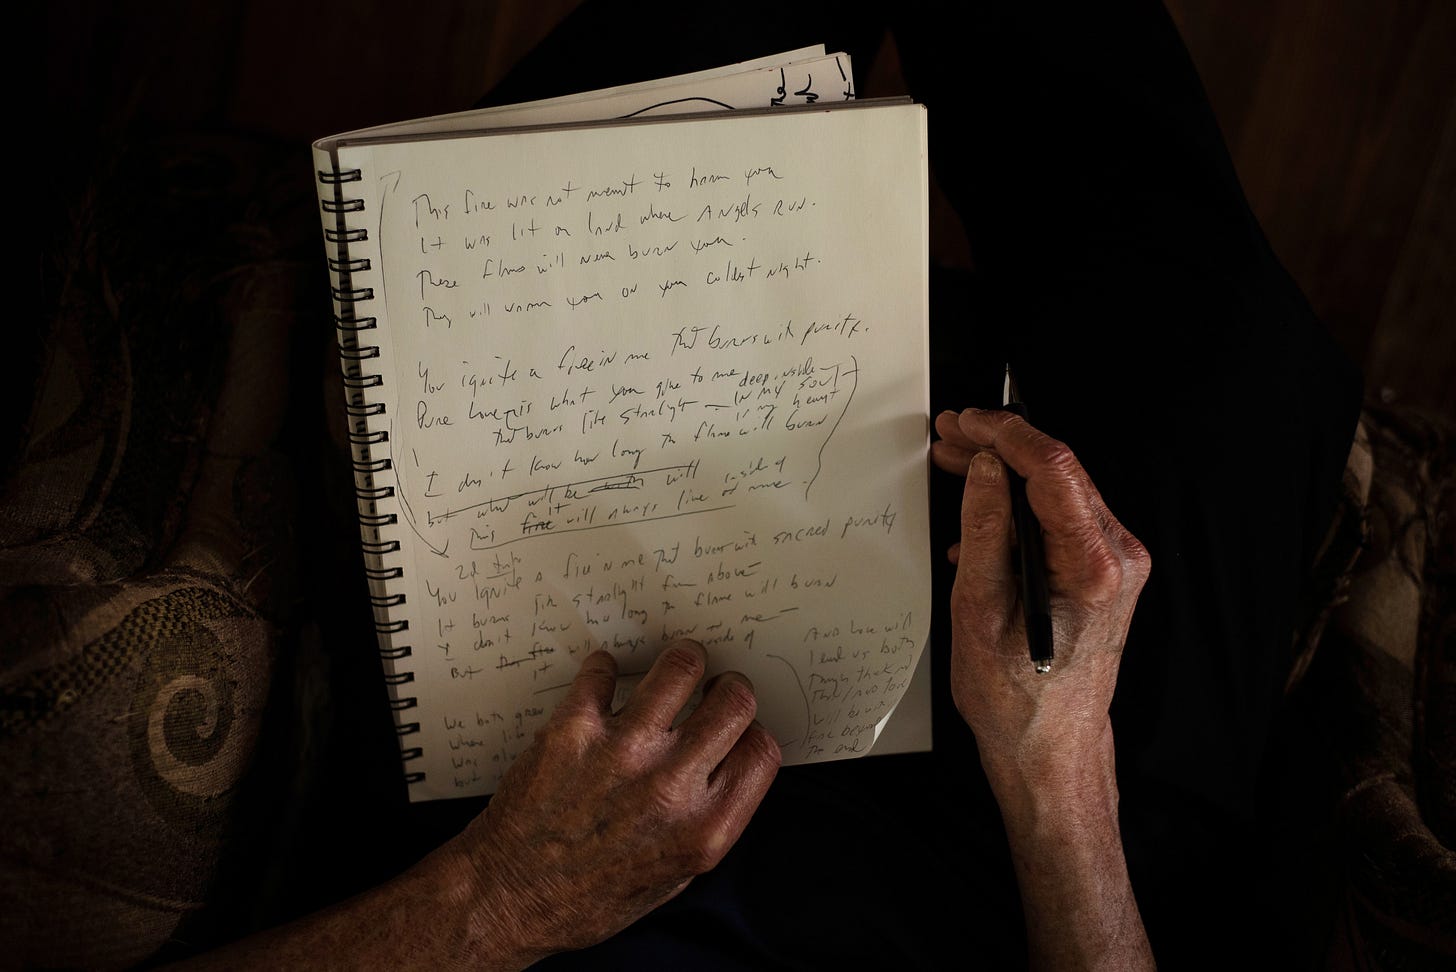 This fire was not meant to harm you
It was lit on land where Angels Run.
These flames will never burn you.
They will warm you on your coldest night.
You ignite a fire in me that burns with purity.
Pure Love is what you give to me deep inside
that burns like starlight - in my soul
in my heart
I don't know how long the flame will burn
but what will be will
inside of
This fire it will always live in me.
2d
You ignite a fire in me that burns with sacred purity
It burns like starlight from above
I don't know how long the flame will burn
But this fire will always burn in me
it inside of
We both grew
where
was
but
And love will
lead us both
will be
beyond
The end